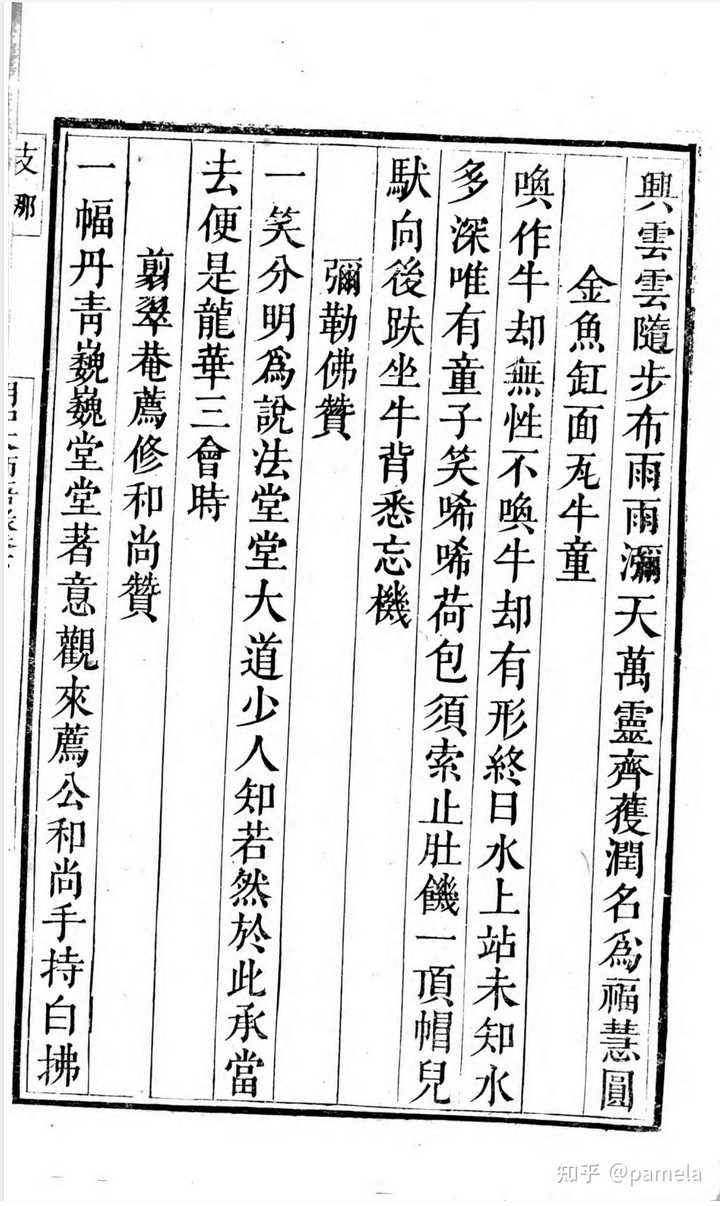 興雲雲隨步布雨雨瀰天萬靈齊獲潤名為福慧圓
金魚缸面瓦牛童
喚作牛却無性不喚牛却有形終日水上站未知水
多深唯有童子笑唏唏荷包須索止肚饑一頂帽兒
馱向後趺坐牛背悉忘機
彌勒佛贊
一笑分明爲說法堂堂大道少人知若然於此承當
去便是龍華三會時
翦翠菴薦修和尚贊
一幅丹青巍巍堂堂著意觀來薦公和尚手持白拂
支那
知乎 @pamela